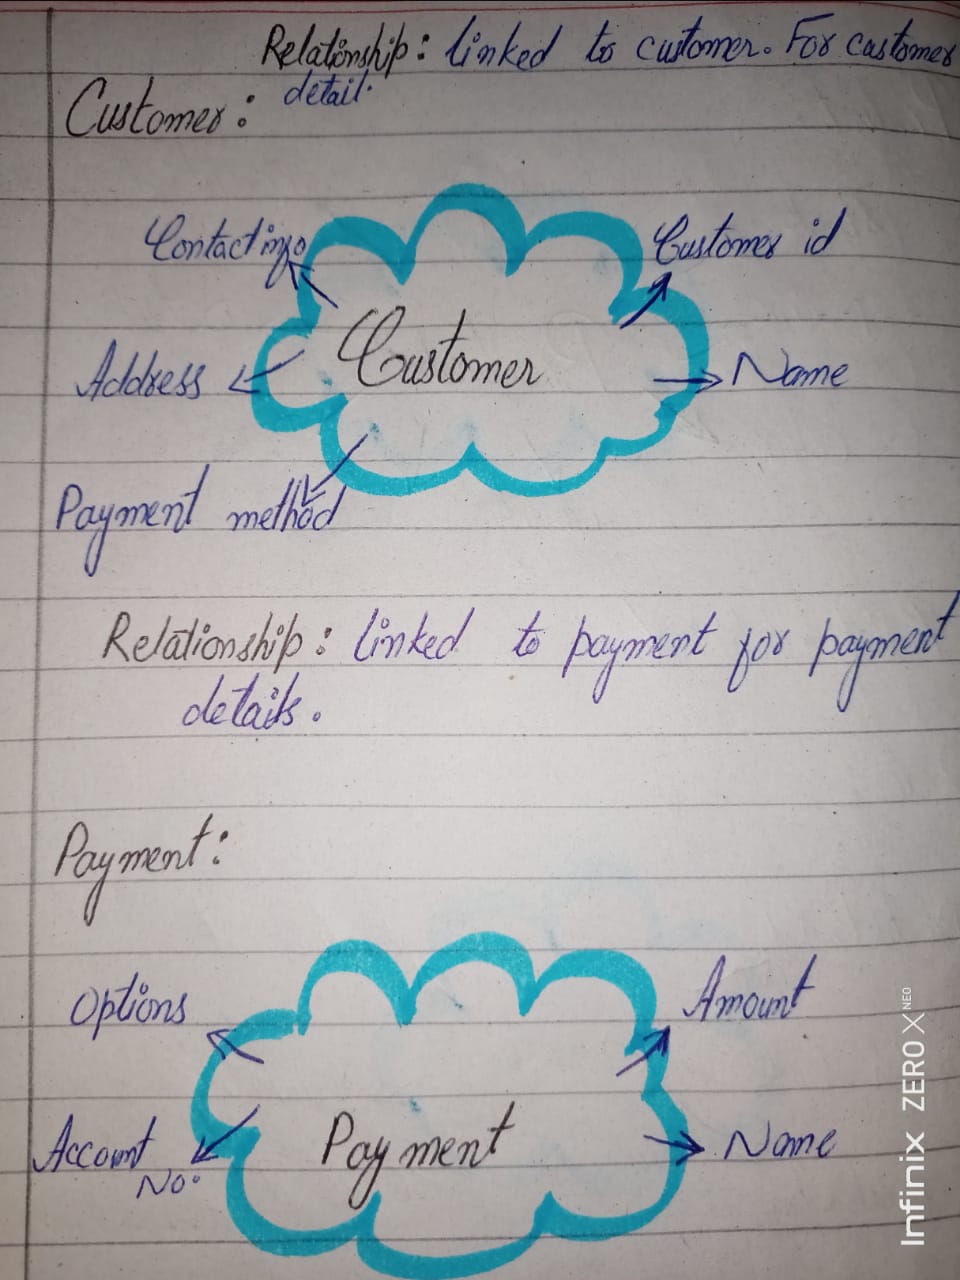 Relationship: linked to customer. For customer
detail.
Customer:
Contact info
Customer id
Customer
Address
Name
Payment method
Relationship: linked to payment for payment
details.
Payment:
Options
Amount
Payment
Account
No.
Name
Infinix ZERO X NEO